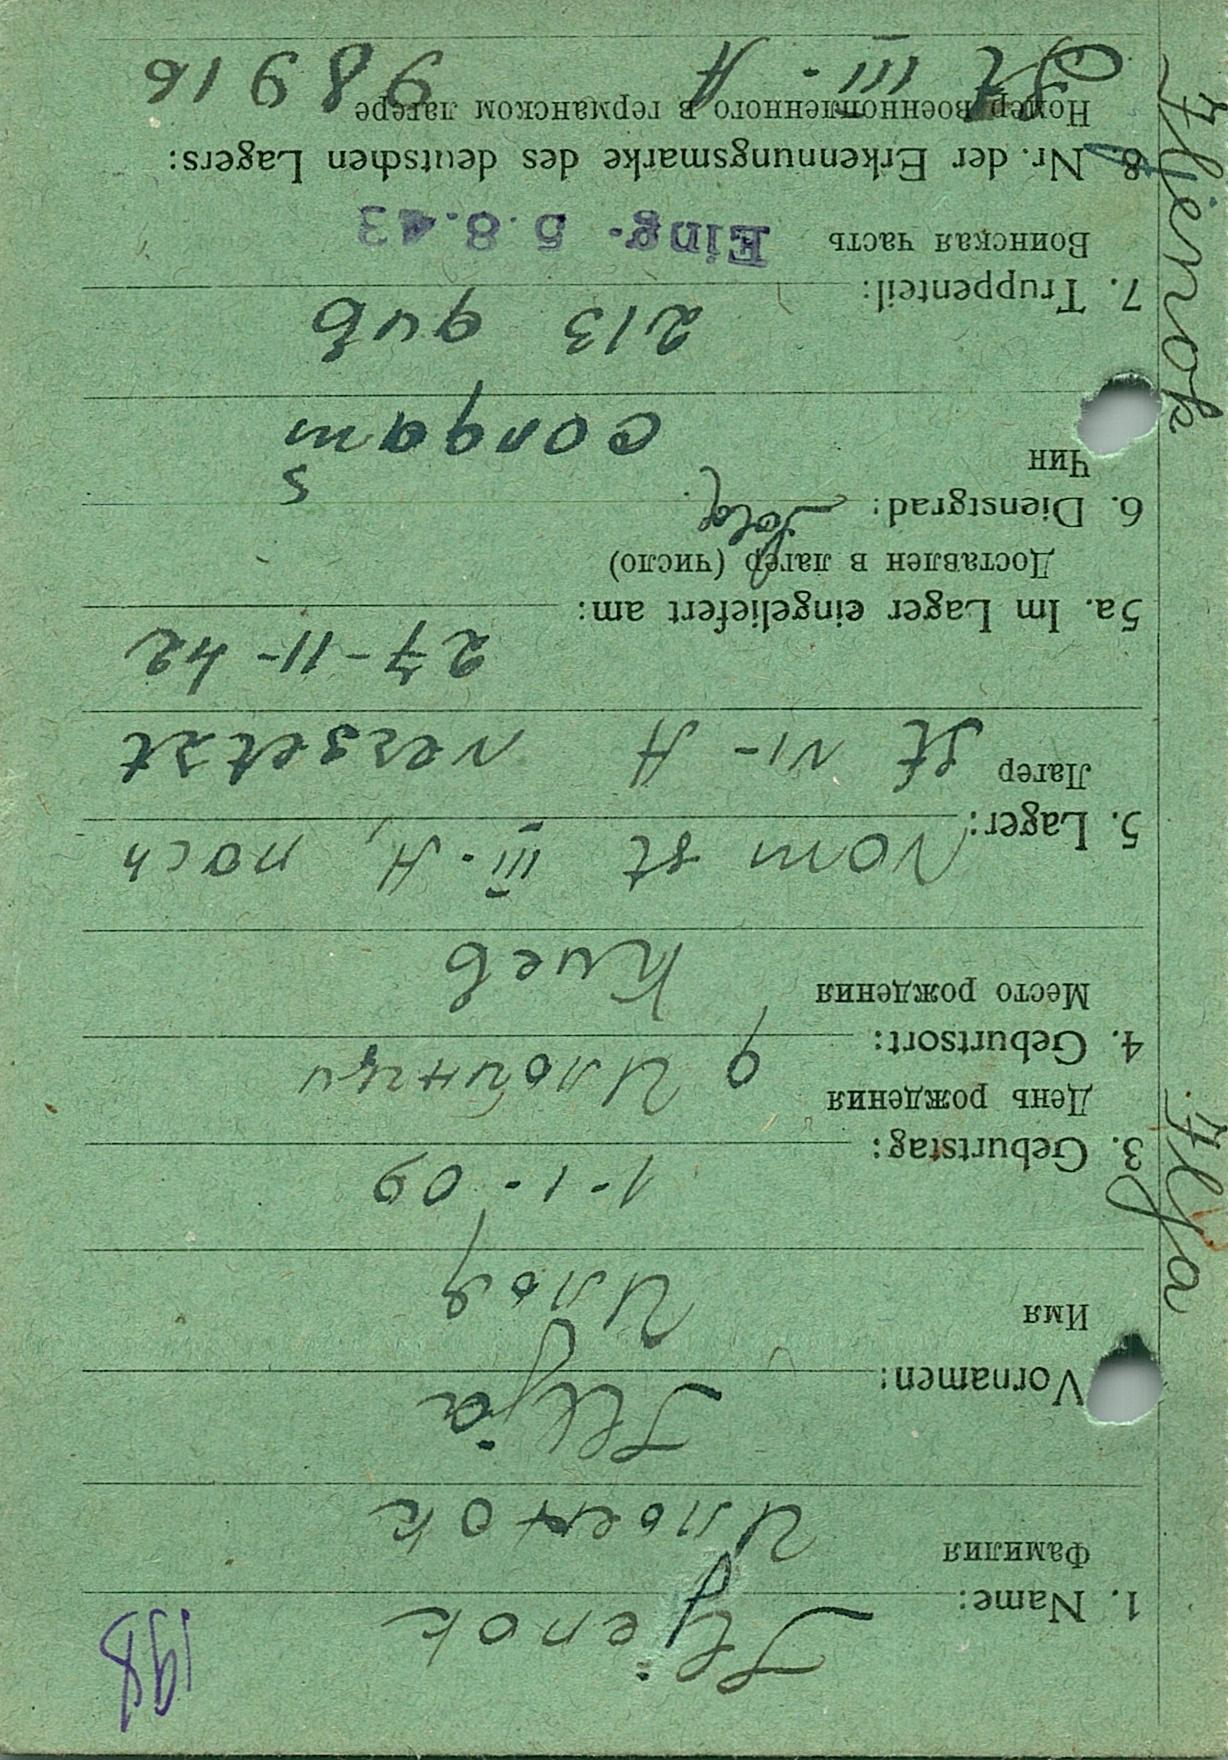 198
Iljenok
1. Name:
Фамилия
Ильенок
Vornamen:
Ilja
Имя
Илья
3. Geburtstag: 1-1-09
День рождения
4. Geburtsort: д Ильинци
Место рождения
Киев
5. Lager: Vom St III-A, nach
Лагер
St VI-A versetzt
5a. Im Lager eingeliefert am: 27-11-42
Доставлен в лагер (число)
6. Dienstgrad: Sold. 5
Чин
солдат
7. Truppenteil: 213 див
Воинская часть
Eing. 5.8.43
8 Nr. der Erkennungsmarke des deutschen Lagers:
Номер военнопленного в германском лагере
St III-A 98916
Iljenok
Ilja